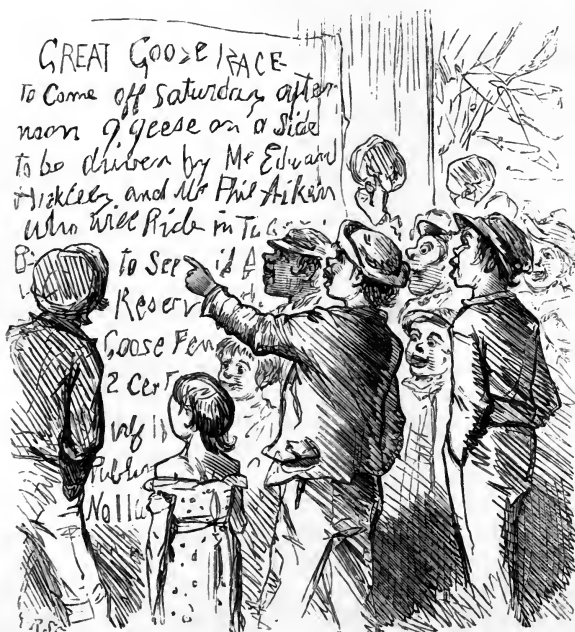 GREAT GOOSE RACE
To Come off Saturday after
noon 9 geese on a side
to be driven by Mr Edward
and Mr Phil Aikin
who will Ride in
to See if
Reserv
Goose Fen
2 Cent
R.S.